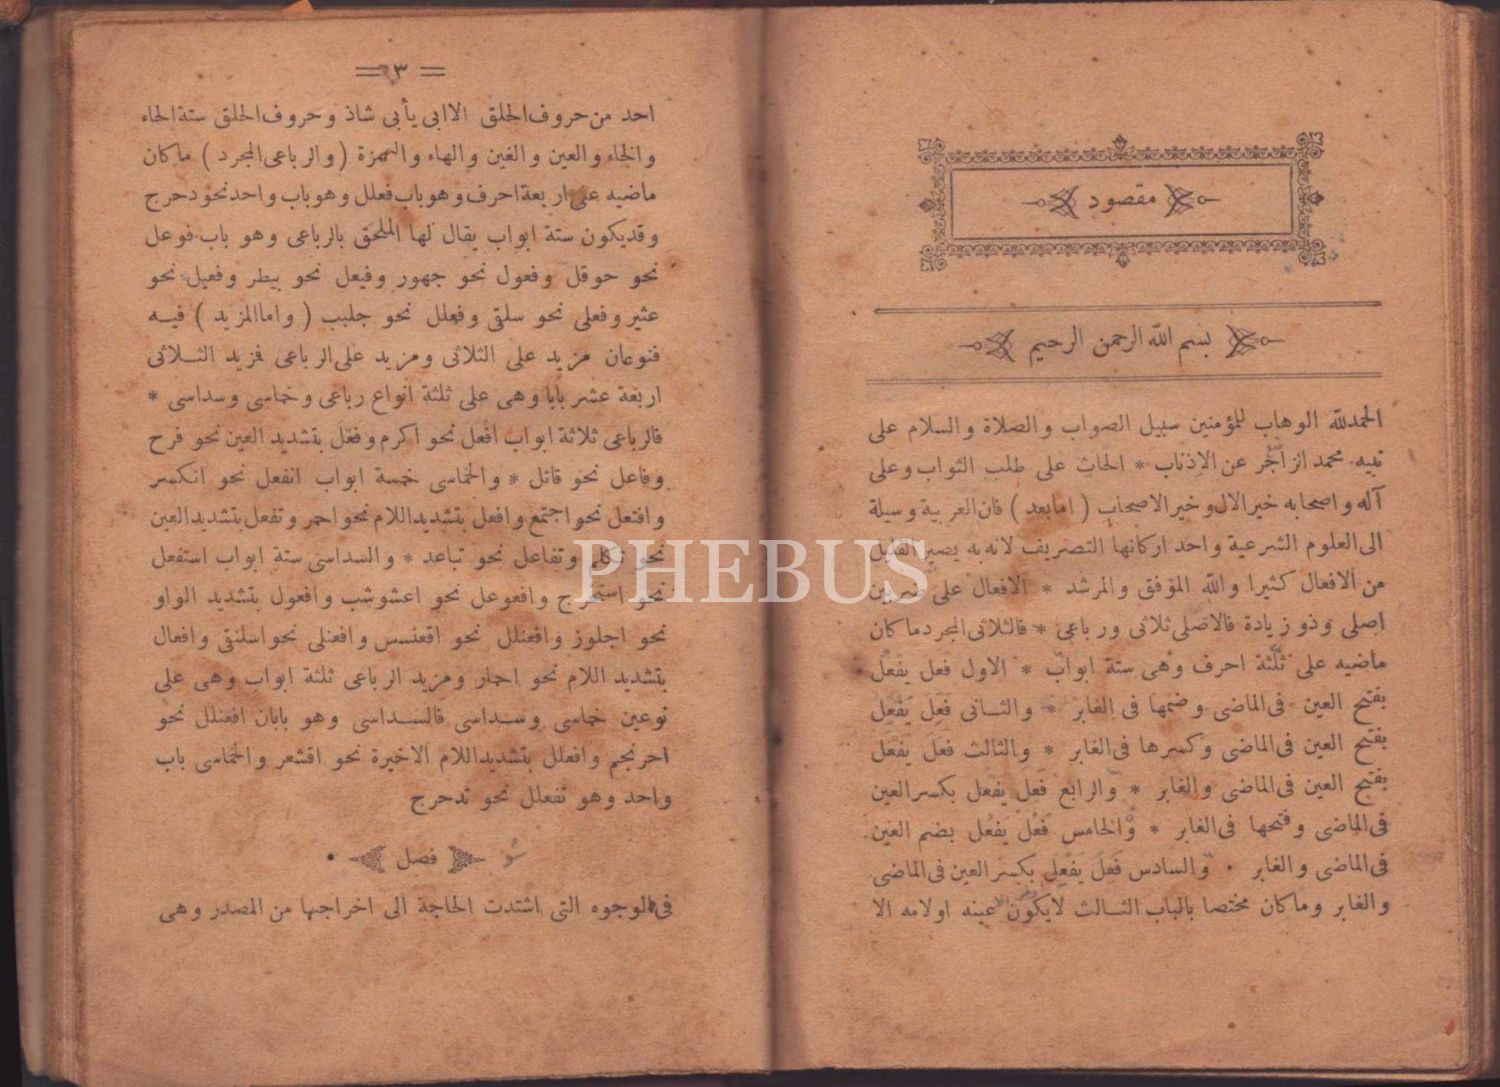 مقصود
بسم الله الرحمن الرحيم
الحمدلله الوهاب للمؤمنين سبيل الصواب والصلاة والسلام على
نبيه محمد الزاجر عن الاذناب * الحاث على طلب الثواب وعلى
آله واصحابه خير الال وخير الاصحاب ( امابعد ) فان العربية وسيلة
الى العلوم الشرعية واحد اركانها التصريف لانه به يصير القليل
من الافعال كثيرا والله الموفق والمرشد * الافعال على ضربين
اصلى وذو زيادة فالاصلى ثلاثى ورباعى * فالثلاثى المجرد ماكان
ماضيه على ثلثة احرف وهى ستة ابواب * الاول فعل يفعل
بفتح العين فى الماضى وضمها فى الغابر * والثانى فَعَلَ يَفْعِل
بفتح العين فى الماضى وكسرها فى الغابر * والثالث فعل يفعل
بفتح العين فى الماضى والغابر * والرابع فعل يفعل بكسر العين
فى الماضى وفتحها فى الغابر * والخامس فَعُل يفعُل بضم العين
فى الماضى والغابر * والسادس فَعِلَ يفعِل بكسر العين فى الماضى
والغابر وماكان مختصا بالباب الثالث لايكون عينه اولامه الا
= ٣ =
احد من حروف الحلق الا ابى يأبى شاذ وحروف الحلق ستة الحاء
والخاء والعين والغين والهاء والهمزة ( والرباعى المجرد ) ماكان
ماضيه على اربعة احرف وهو باب فعلل وهو باب واحد نحو دحرج
وقديكون ستة ابواب يقال لها الملحق بالرباعى وهو باب فوعل
نحو حوقل وفعول نحو جهور وفيعل نحو بيطر وفعيل نحو
عثير وفعلى نحو سلقى وفعلل نحو جلبب ( واما المزيد ) فيه
فنوعان مزيد على الثلاثى ومزيد على الرباعى فمزيد الثلاثى
اربعة عشر بابا وهى على ثلثة انواع رباعى وخماسى وسداسى *
فالرباعى ثلاثة ابواب افعل نحو اكرم وفعّل بتشديد العين نحو فرح
وفاعل نحو قاتل * والخماسى خمسة ابواب انفعل نحو انكسر
وافتعل نحو اجتمع وافعل بتشديد اللام نحو احمر وتفعل بتشديد العين
نحو تكلم وتفاعل نحو تباعد * والسداسى ستة ابواب استفعل
نحو استخرج وافعوعل نحو اعشوشب وافعول بتشديد الواو
نحو اجلوز وافعنلل نحو اقعنسس وافعنلى نحو اسلنقى وافعال
بتشديد اللام نحو احمار ومزيد الرباعى ثلثة ابواب وهى على
نوعين خماسى وسداسى فالسداسى وهو بابان افعنلل نحو
احرنجم وافعلل بتشديد اللام الاخيرة نحو اقشعر والخماسى باب
واحد وهو تفعلل نحو تدحرج
فصل
فى الوجوه التى اشتدت الحاجة الى اخراجها من المصدر وهى
PHEBUS